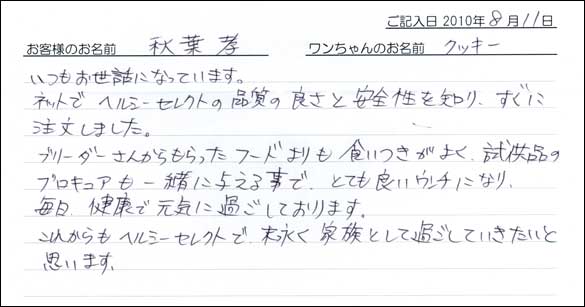 ご記入日 2010年 8月 11日
お客様のお名前 秋葉 孝 ワンちゃんのお名前 クッキー
いつもお世話になっています。
ネットで ヘルシーセレクトの 品質の 良さと 安全性を知り、すぐに
注文しました。
ブリーダーさんからもらった フードよりも 食いつきがよく、試供品の
プロキュアも 一緒に与える事で、とても良いウンチになり、
毎日、健康で元気に過ごしております。
これからも ヘルシーセレクトで、末永く 家族として過ごしていきたいと
思います。